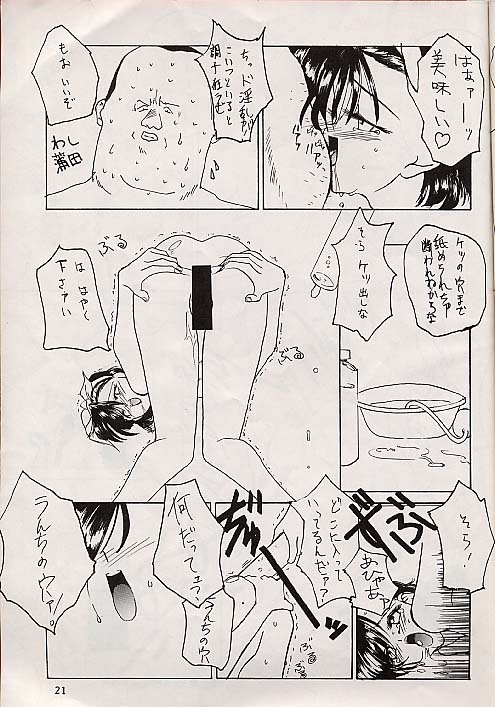 はぁァーッ
美味しい♡
ちッド淫乱が
こいつといると
調子狂うぜ
もおいいぞ
わし
ケツの穴まで
舐められんちゃ
そらケツ出しな
ぶる
ぶる
は はやく
下さァい
そら!
ぶぢゅーーッ
あひゃあァ
どこに入って
いってるんだァ?
うんちの穴
ぶる
ぶる
何だってェ?
うんちの穴ァ!
21